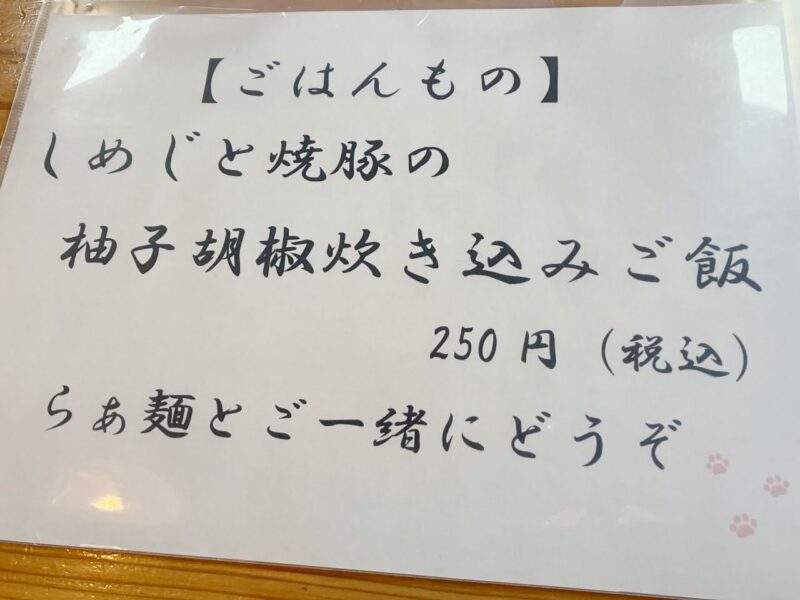 【ごはんもの】
しめじと焼豚の
柚子胡椒炊き込みご飯
250円（税込）
らぁ麺とご一緒にどうぞ